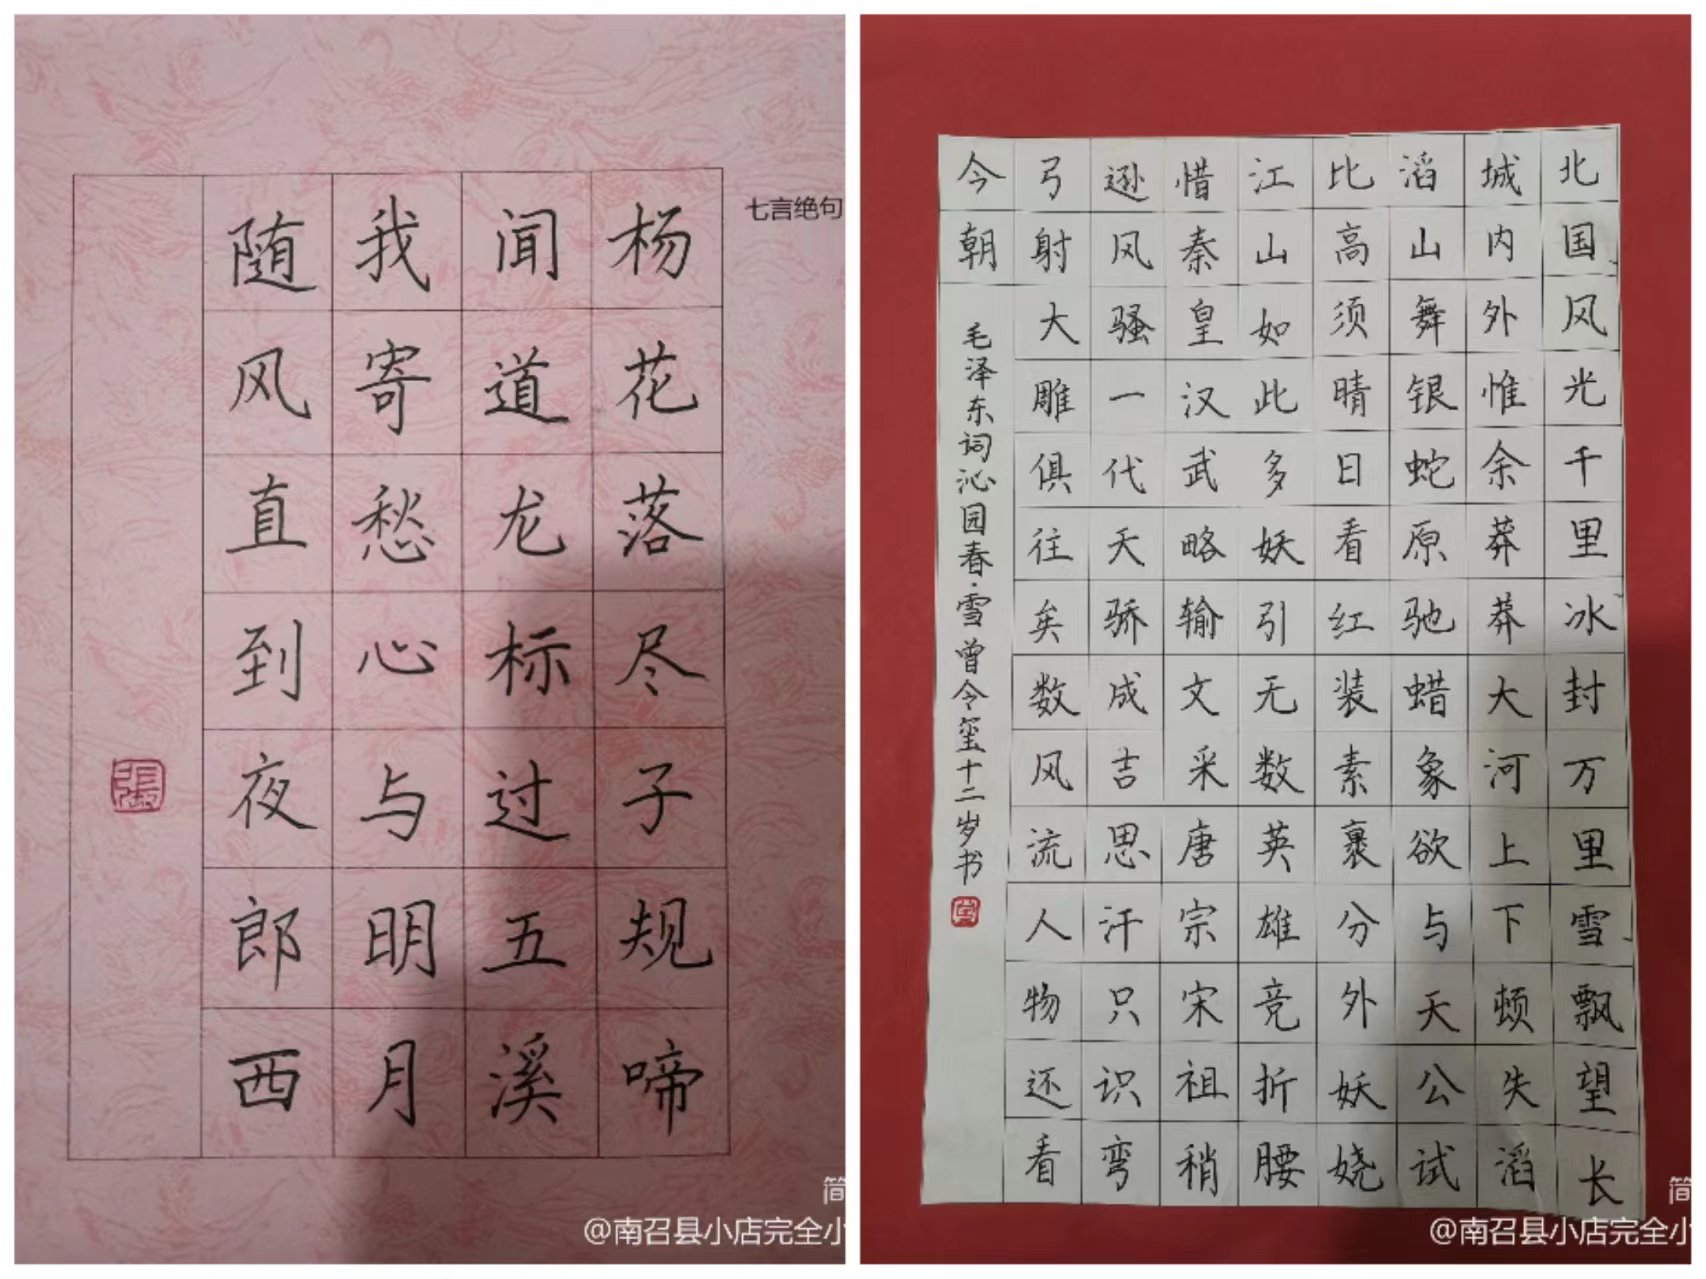 七言绝句
杨花落尽子规啼
闻道龙标过五溪
我寄愁心与明月
随风直到夜郎西
張
简
@南召县小店完全小
北国风光千里冰封万里雪飘望长
城内外惟余莽莽大河上下顿失滔
滔山舞银蛇原驰蜡象欲与天公试
比高须晴日看红装素裹分外妖娆
江山如此多妖引无数英雄竞折腰
惜秦皇汉武略输文采唐宗宋祖稍
逊风骚一代天骄成吉思汗只识弯
弓射大雕俱往矣数风流人物还看
今朝
毛泽东词沁园春·雪曾令玺十二岁书
简
@南召县小店完全小